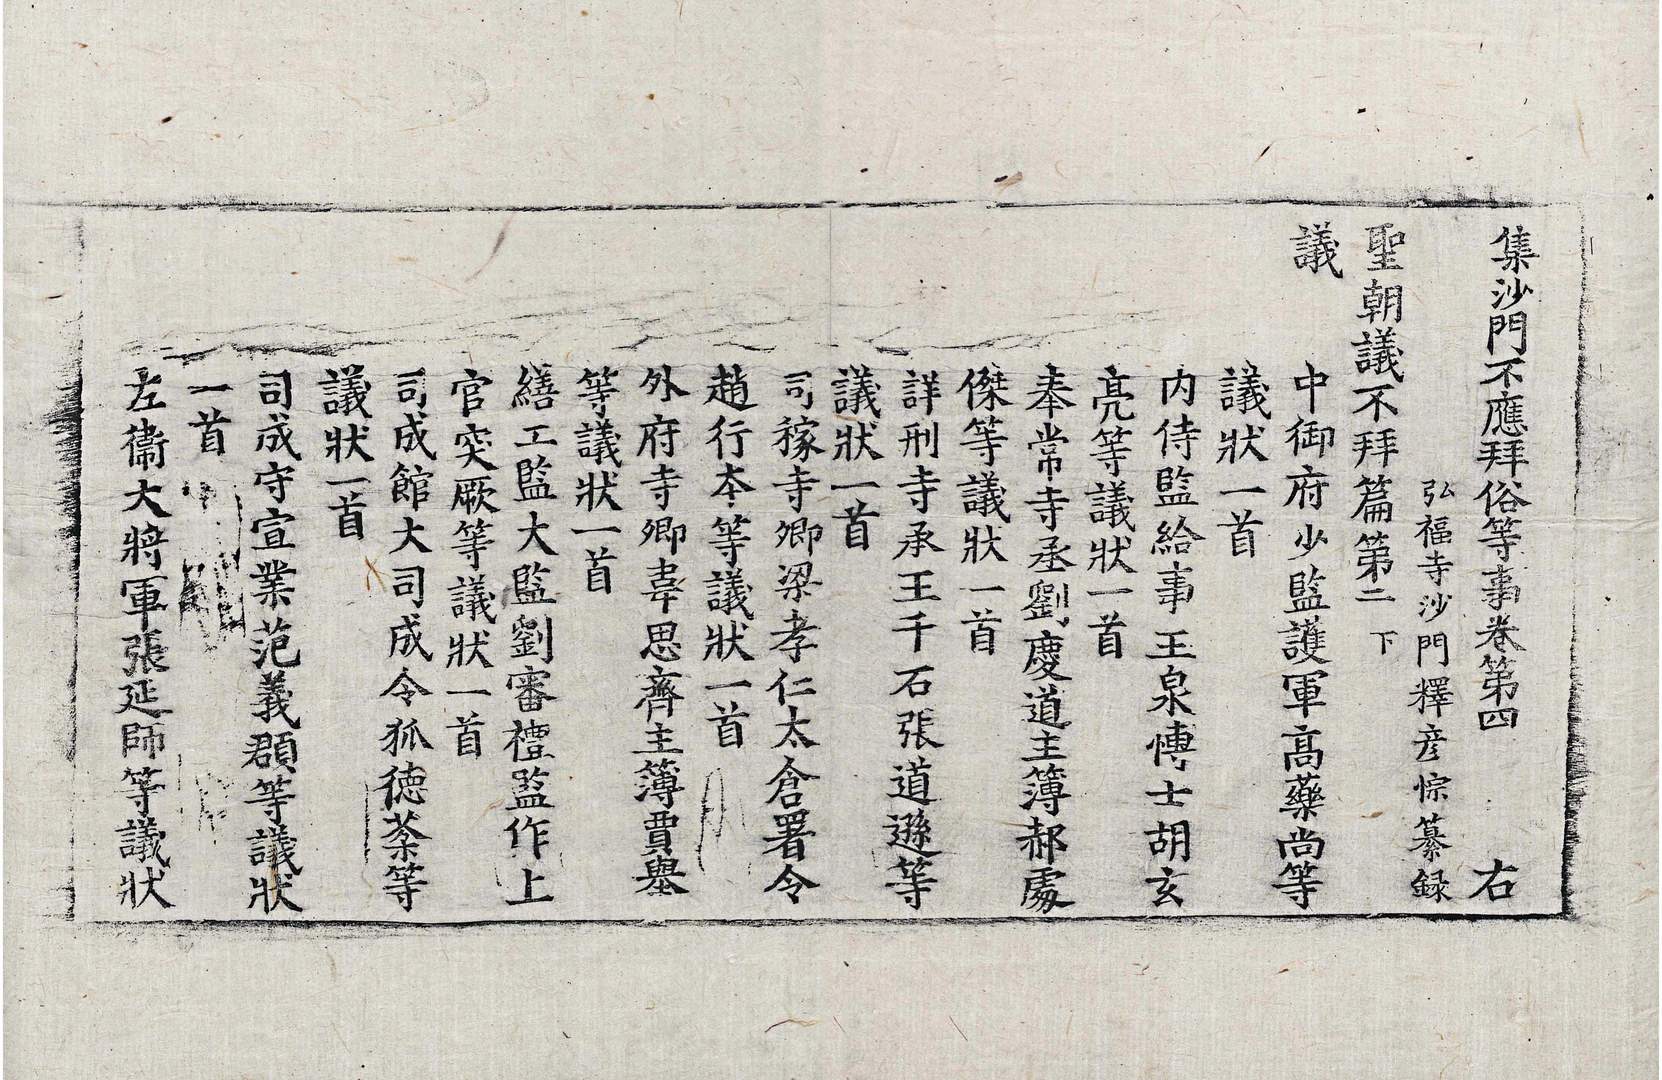 集沙門不應拜俗等事卷第四 右
弘福寺沙門釋彦悰纂録
聖朝議不拜篇第二 下
議
中御府少監護軍高藥尚等
議狀一首
内侍監給事王泉博士胡玄
亮等議狀一首
奉常寺丞劉慶道主簿郝處
傑等議狀一首
詳刑寺承王千石張道遜等
議狀一首
司稼寺卿梁孝仁太倉署令
趙行本等議狀一首
外府寺卿韋思齊主簿賈舉
等議狀一首
繕工監大監劉審禮監作上
官突厥等議狀一首
司成館大司成令狐德棻等
議狀一首
司成守宣業范義頵等議狀
一首
左衞大將軍張延師等議狀